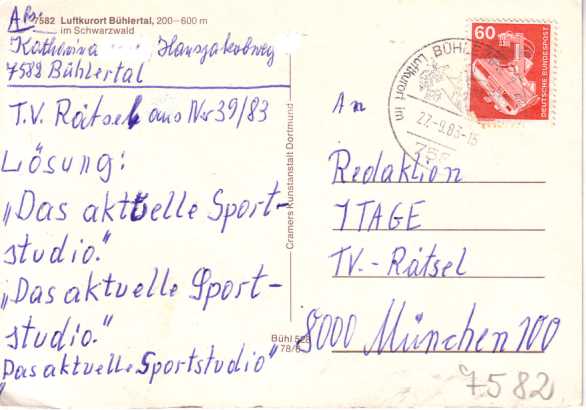 Abs.
7582 Luftkurort Bühlertal, 200–600 m
im Schwarzwald
Katharina Hansjakobweg
7582 Bühlertal
T.V. Rätsel aus Nr 39/83
Lösung:
„Das aktuelle Sport-
studio.“
„Das aktuelle Sport-
studio.“
Das aktuelle Sportstudio“
Cramers Kunstanstalt Dortmund
Bühl 528
78/6
60
DEUTSCHE BUNDESPOST
BÜHL
Luftkurort im
27.-9.83-15
758
An
Redaktion
7 TAGE
TV.-Rätsel
8000 München 100
7582